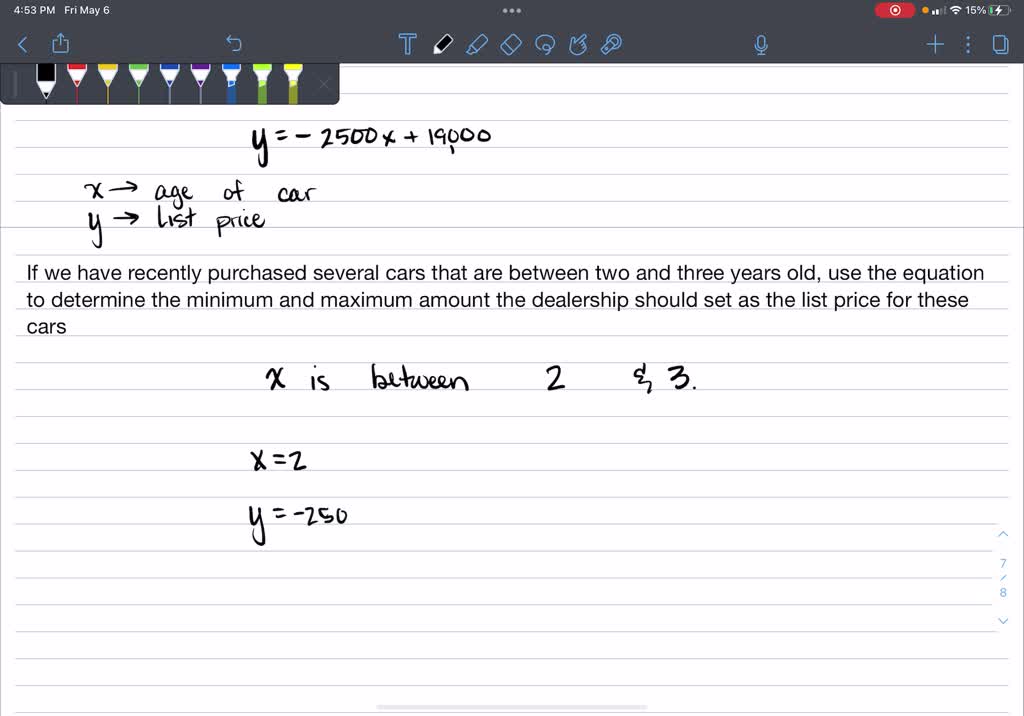 4:53 PM Fri May 6
15%
T
y = - 2500x + 19,000
x → age of car
y → list price
If we have recently purchased several cars that are between two and three years old, use the equation
to determine the minimum and maximum amount the dealership should set as the list price for these
cars
x is between 2 & 3.
x = 2
y = -250
7
/
8